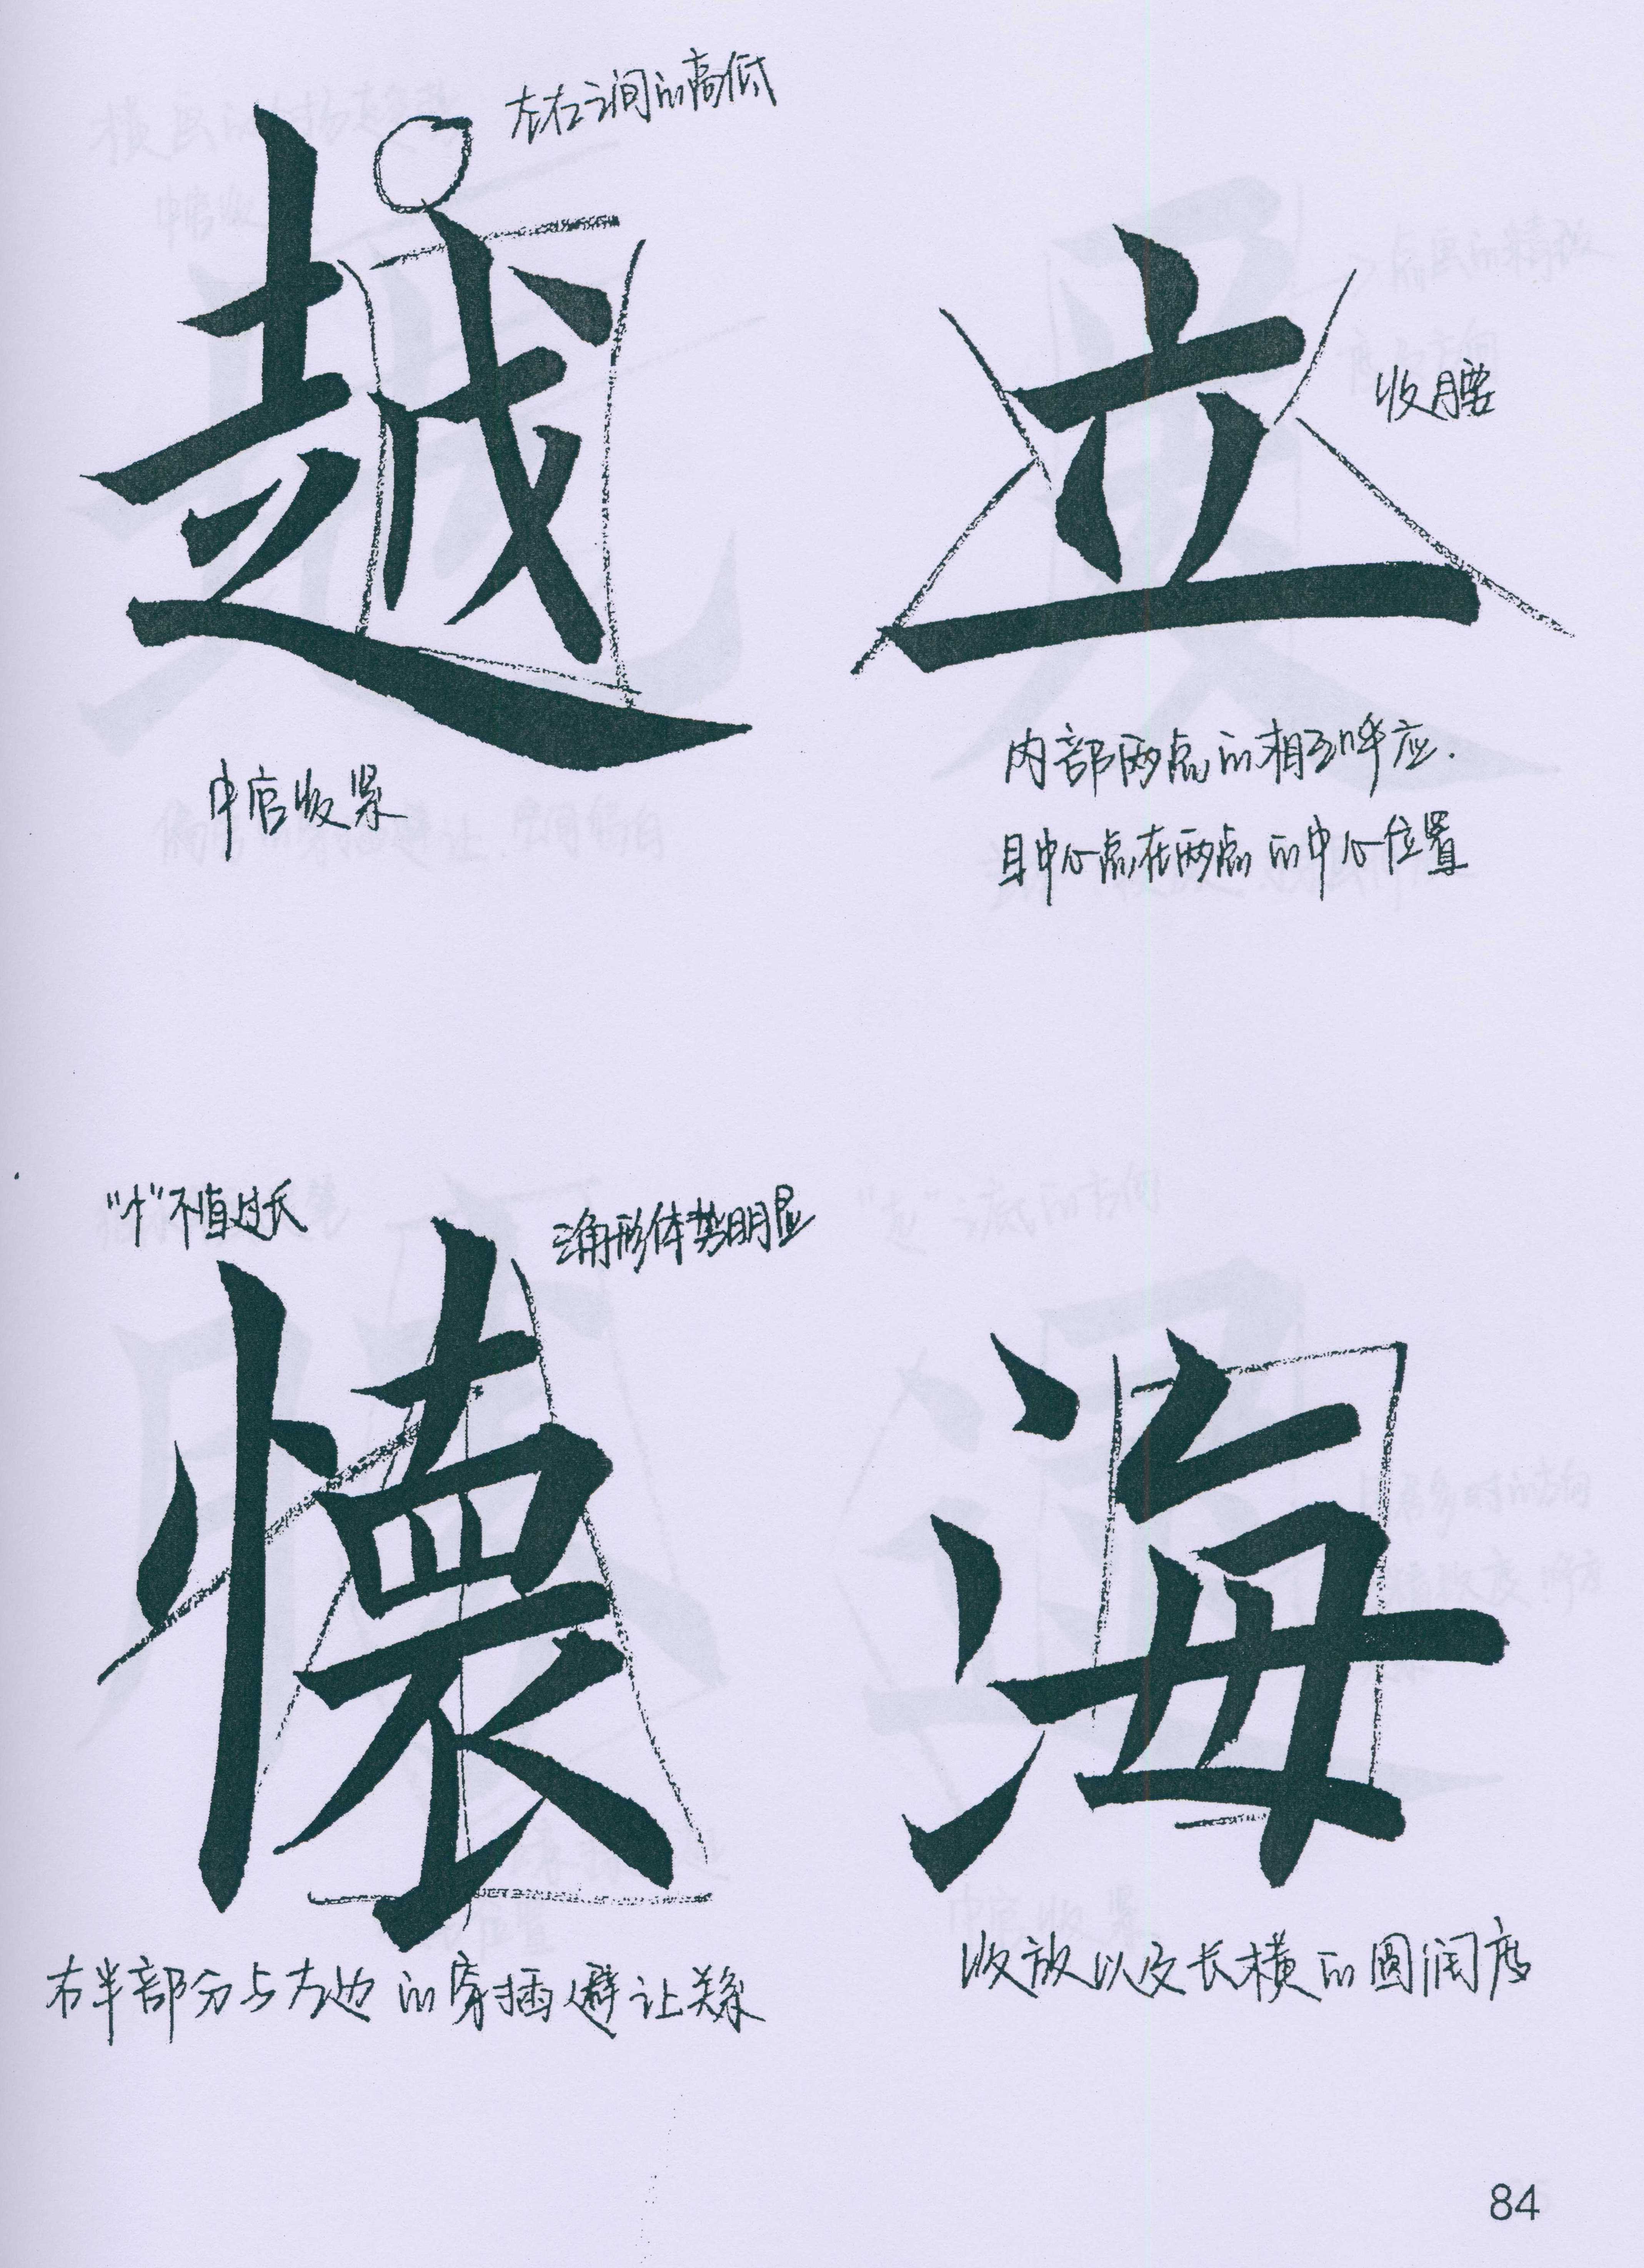 左右之间的高低
越
中宫收紧
立
收腰
内部两点的相互呼应.
且中心点在两点的中心位置
"忄"不宜过长
三角形体势明显
懷
右半部分与左边的穿插避让关系
海
收放以及长横的圆润度
84